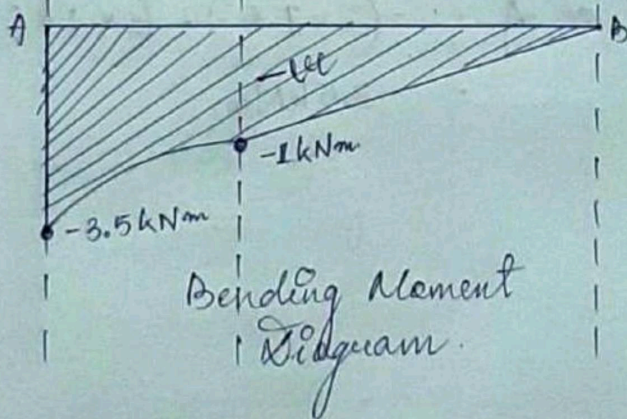 A B
-ve
-1kNm
-3.5kNm
Bending Moment
Diagram.